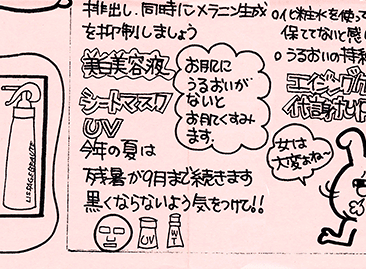 排出し、同時にメラニン生成
を抑制しましょう
美白美容液
シートマスク
UV
今年の夏は
残暑が9月まで続きます
黒くならないよう気をつけて!!
お肌に
うるおいが
ないと
お肌くすみ
ます。
○化粧水を使っ
保ててないと感じ
○うるおいの持続
エイジングケ
女は
大変よね~
LISSAGE BEAUTE
UV
WT